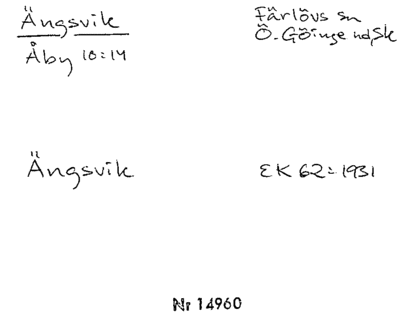 Ängsvik
Åby 10:14
Färlövs sn
Ö. Göinge hd, Sk
Ängsvik
EK 62 = 1931
Nr 14960